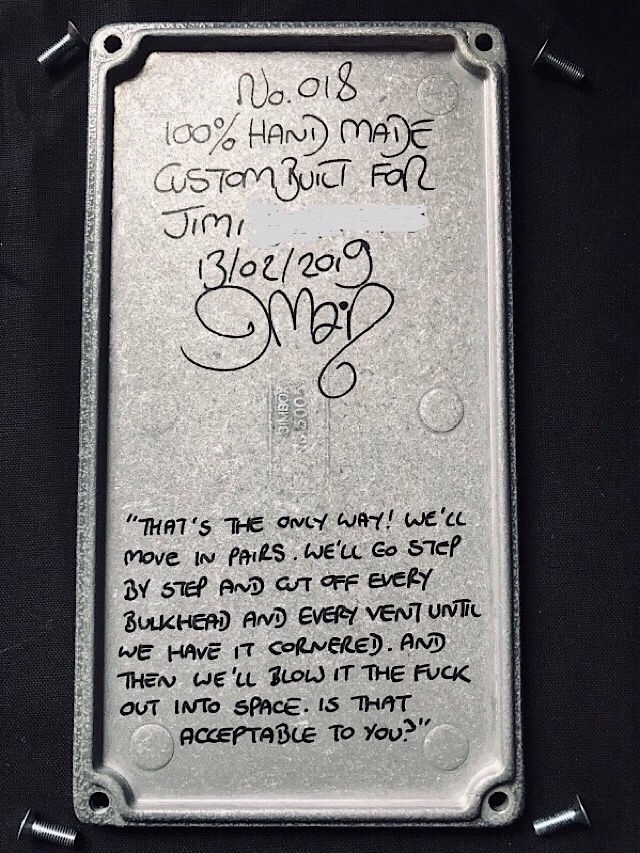 No. 018
100% HAND MADE
CUSTOM BUILT FOR
JIMI
13/02/2019
"THAT'S THE ONLY WAY! WE'LL
MOVE IN PAIRS. WE'LL GO STEP
BY STEP AND CUT OFF EVERY
BULKHEAD AND EVERY VENT UNTIL
WE HAVE IT CORNERED. AND
THEN WE'LL BLOW IT THE FUCK
OUT INTO SPACE. IS THAT
ACCEPTABLE TO YOU?"